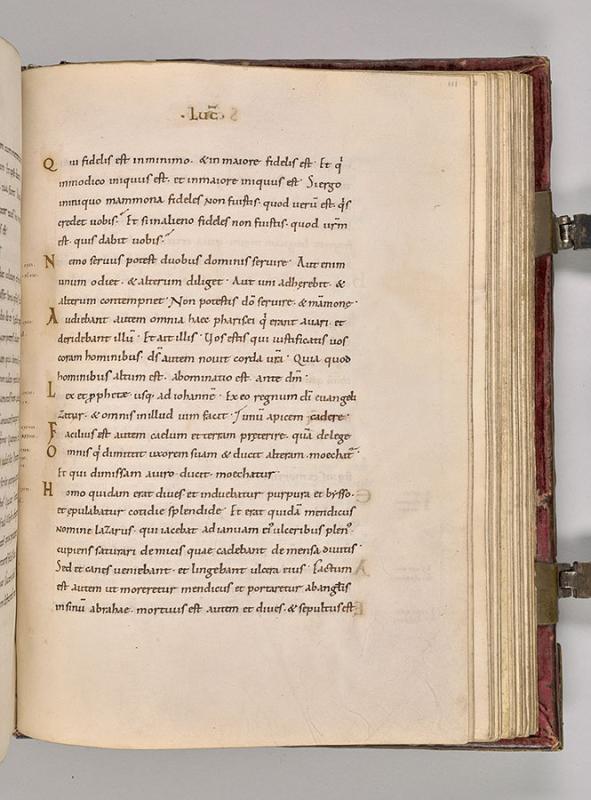 · Luc̄ ·
Qui fidelis est inminimo · & in maiore fidelis est · Et q̇
inmodico iniquus est · et inmaiore iniquus est · Siergo
ininiquo mammona fideles Non fuistis · quod verū est · q̇s
credet uobis · Et si inalieno fideles non fuistis · quod ur̄m
est · quis dabit uobis ·
Nemo seruus potest duobus dominis seruire · Aut enim
unum odiet · & alterum diliget · Aut uni adherebit · &
alterum contempnet · Non potestis dō seruire · & mām̄one ·
Audiebant autem omnia haec pharisei q̇ erant auari · et
deridebant illū · Et ait illis · Uos estis qui iustificatis uos
coram hominibus · d̄s autem nouit corda ur̄a · Quia quod
hominibus altum est · abominatio est · ante dm̄ ·
Lex et p̄phetae · usq; ad iohannē · Ex eo regnum dī euangeli
zatur · & omnis in illud uim facit · unū apicem cadere ·
Facilius est autem caelum et terram praeterire · quā delege
Omnis q̇ dimittit uxorem suam & ducit alteram · moechat᷑ ·
Et qui dimissam auiro ducit · moechatur
Homo quidam erat diues et induebatur purpura et bysso ·
et epulabatur cotidie splendide · Et erat quidā mendicus
nomine lazarus · qui iacebat ad ianuam ei᷒ ulceribus plen᷒ ·
cupiens saturari de micis quae cadebant de mensa diuitis ·
Sed et canes ueniebant · et lingebant ulcera eius · Factum
est autem ut moreretur mendicus et portaretur ab angłis
insinū abrahae · mortuus est autem et diues · & sepultus est